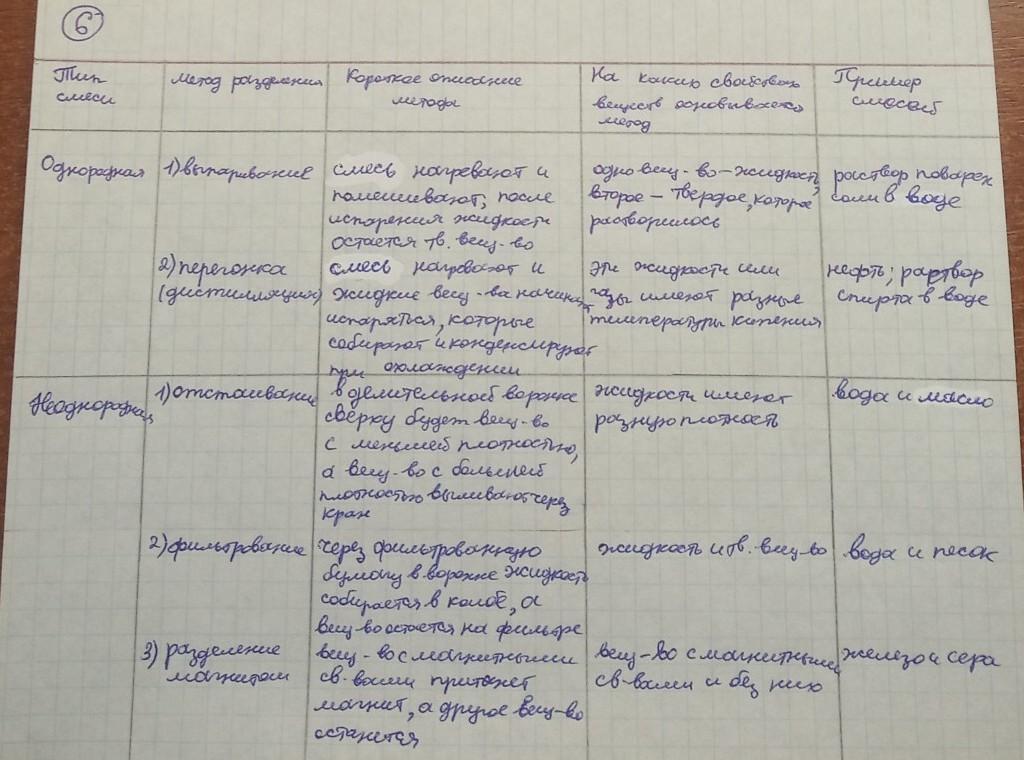 6
Тип
смеси
метод разделения
Короткое описание
метода
На каких свойствах
веществ основывается
метод
Пример
смесей
Однородная
1) выпаривание
смесь нагревают и
помешивают, после
испарения жидкости
остается тв. вещ-во
одно вещ-во - жидкость,
второе - твердое, которое
растворилось
раствор поварен
соли в воде
2) перегонка
(дистилляция)
смесь нагревают и
жидкие вещ-ва начинают
испаряться, которые
собирают и конденсируют
при охлаждении
эти жидкости или
газы имеют разные
температуры кипения
нефть; раствор
спирта в воде
Неоднородная
1) отстаивание
в делительной воронке
сверху будет вещ-во
с меньшей плотностью,
а вещ-во с большей
плотностью выливают через
кран
жидкости имеют
разную плотность
вода и масло
2) фильтрование
через фильтрованную
бумагу в воронке жидкость
собирается в колбе, а
вещ-во остается на фильтре
жидкость и тв. вещ-во
вода и песок
3) разделение
магнитом
вещ-во с магнитными
св-вами притянет
магнит, а другое вещ-во
останется
вещ-во с магнитными
св-вами и без них
железо и сера